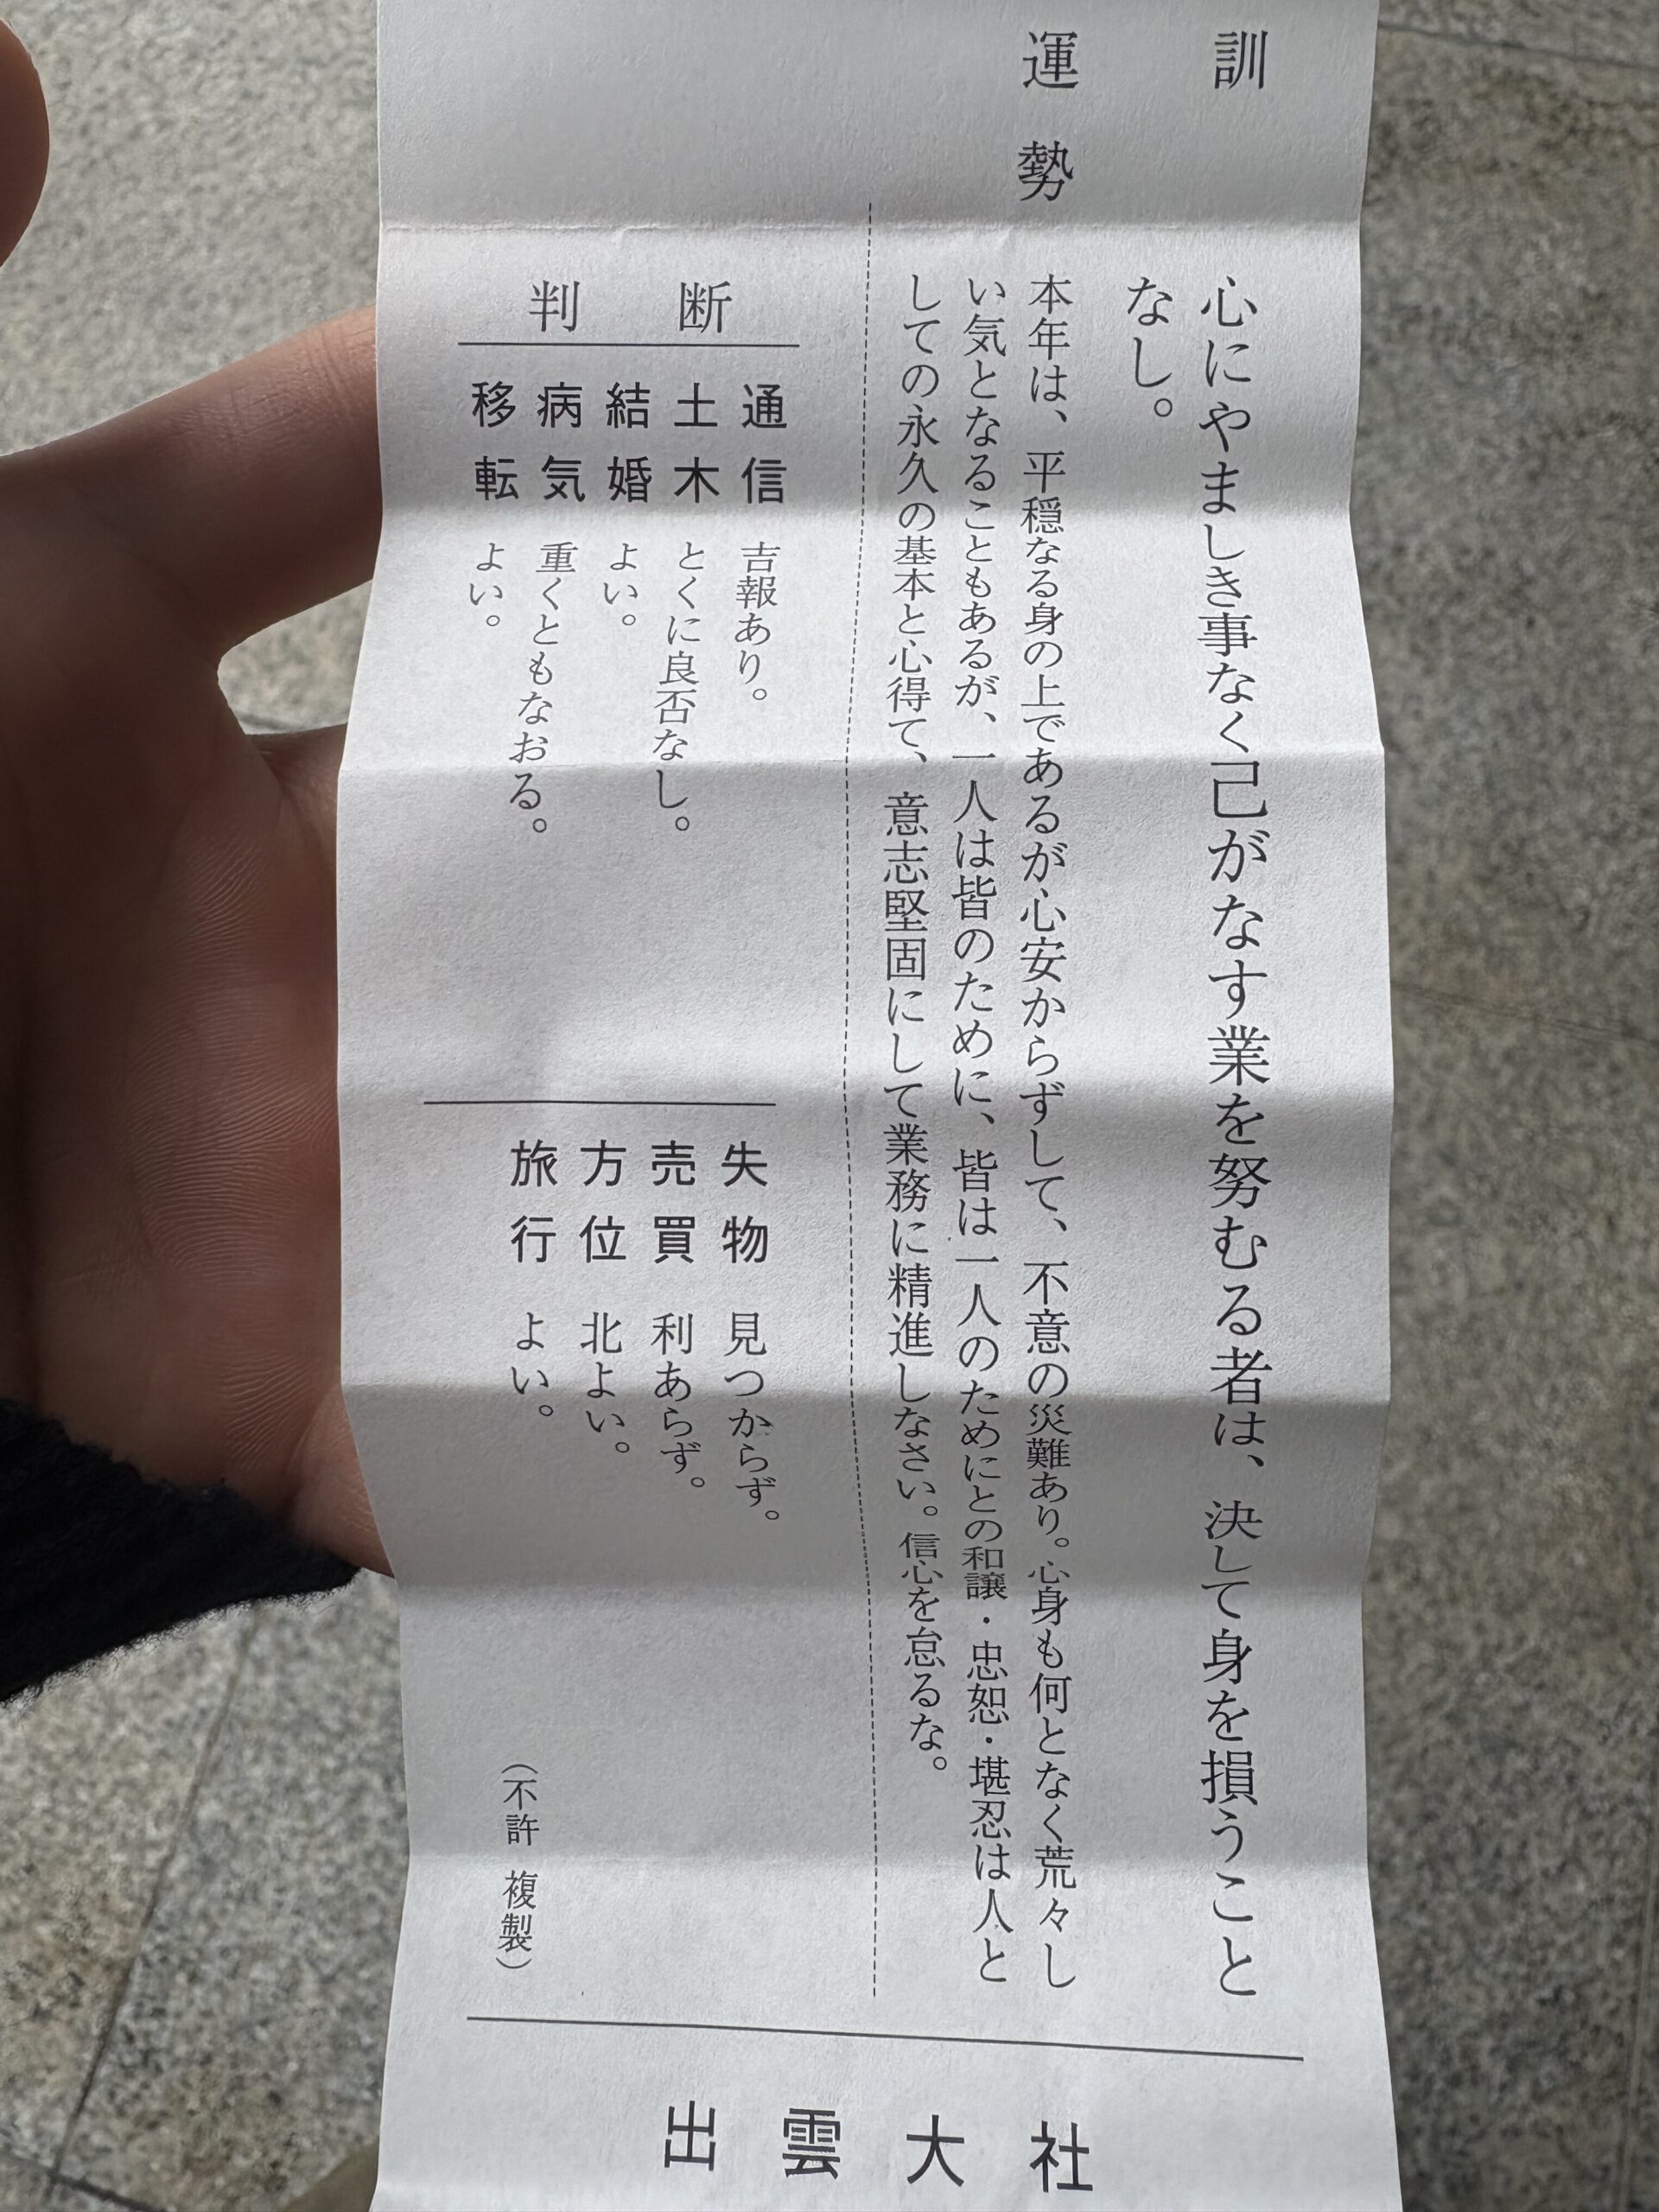 訓
心にやましき事なく己がなす業を努むる者は、決して身を損うこと
なし。
運勢
本年は、平穏なる身の上であるが心安からずして、不意の災難あり。心身も何となく荒々し
い気となることもあるが、一人は皆のために、皆は一人のためにとの和譲・忠恕・堪忍は人と
しての永久の基本と心得て、意志堅固にして業務に精進しなさい。信心を怠るな。
判断
通信 吉報あり。
土木 とくに良否なし。
結婚 よい。
病気 重くともなおる。
移転 よい。
失物 見つからず。
売買 利あらず。
方位 北よい。
旅行 よい。
（不許 複製）
出雲大社